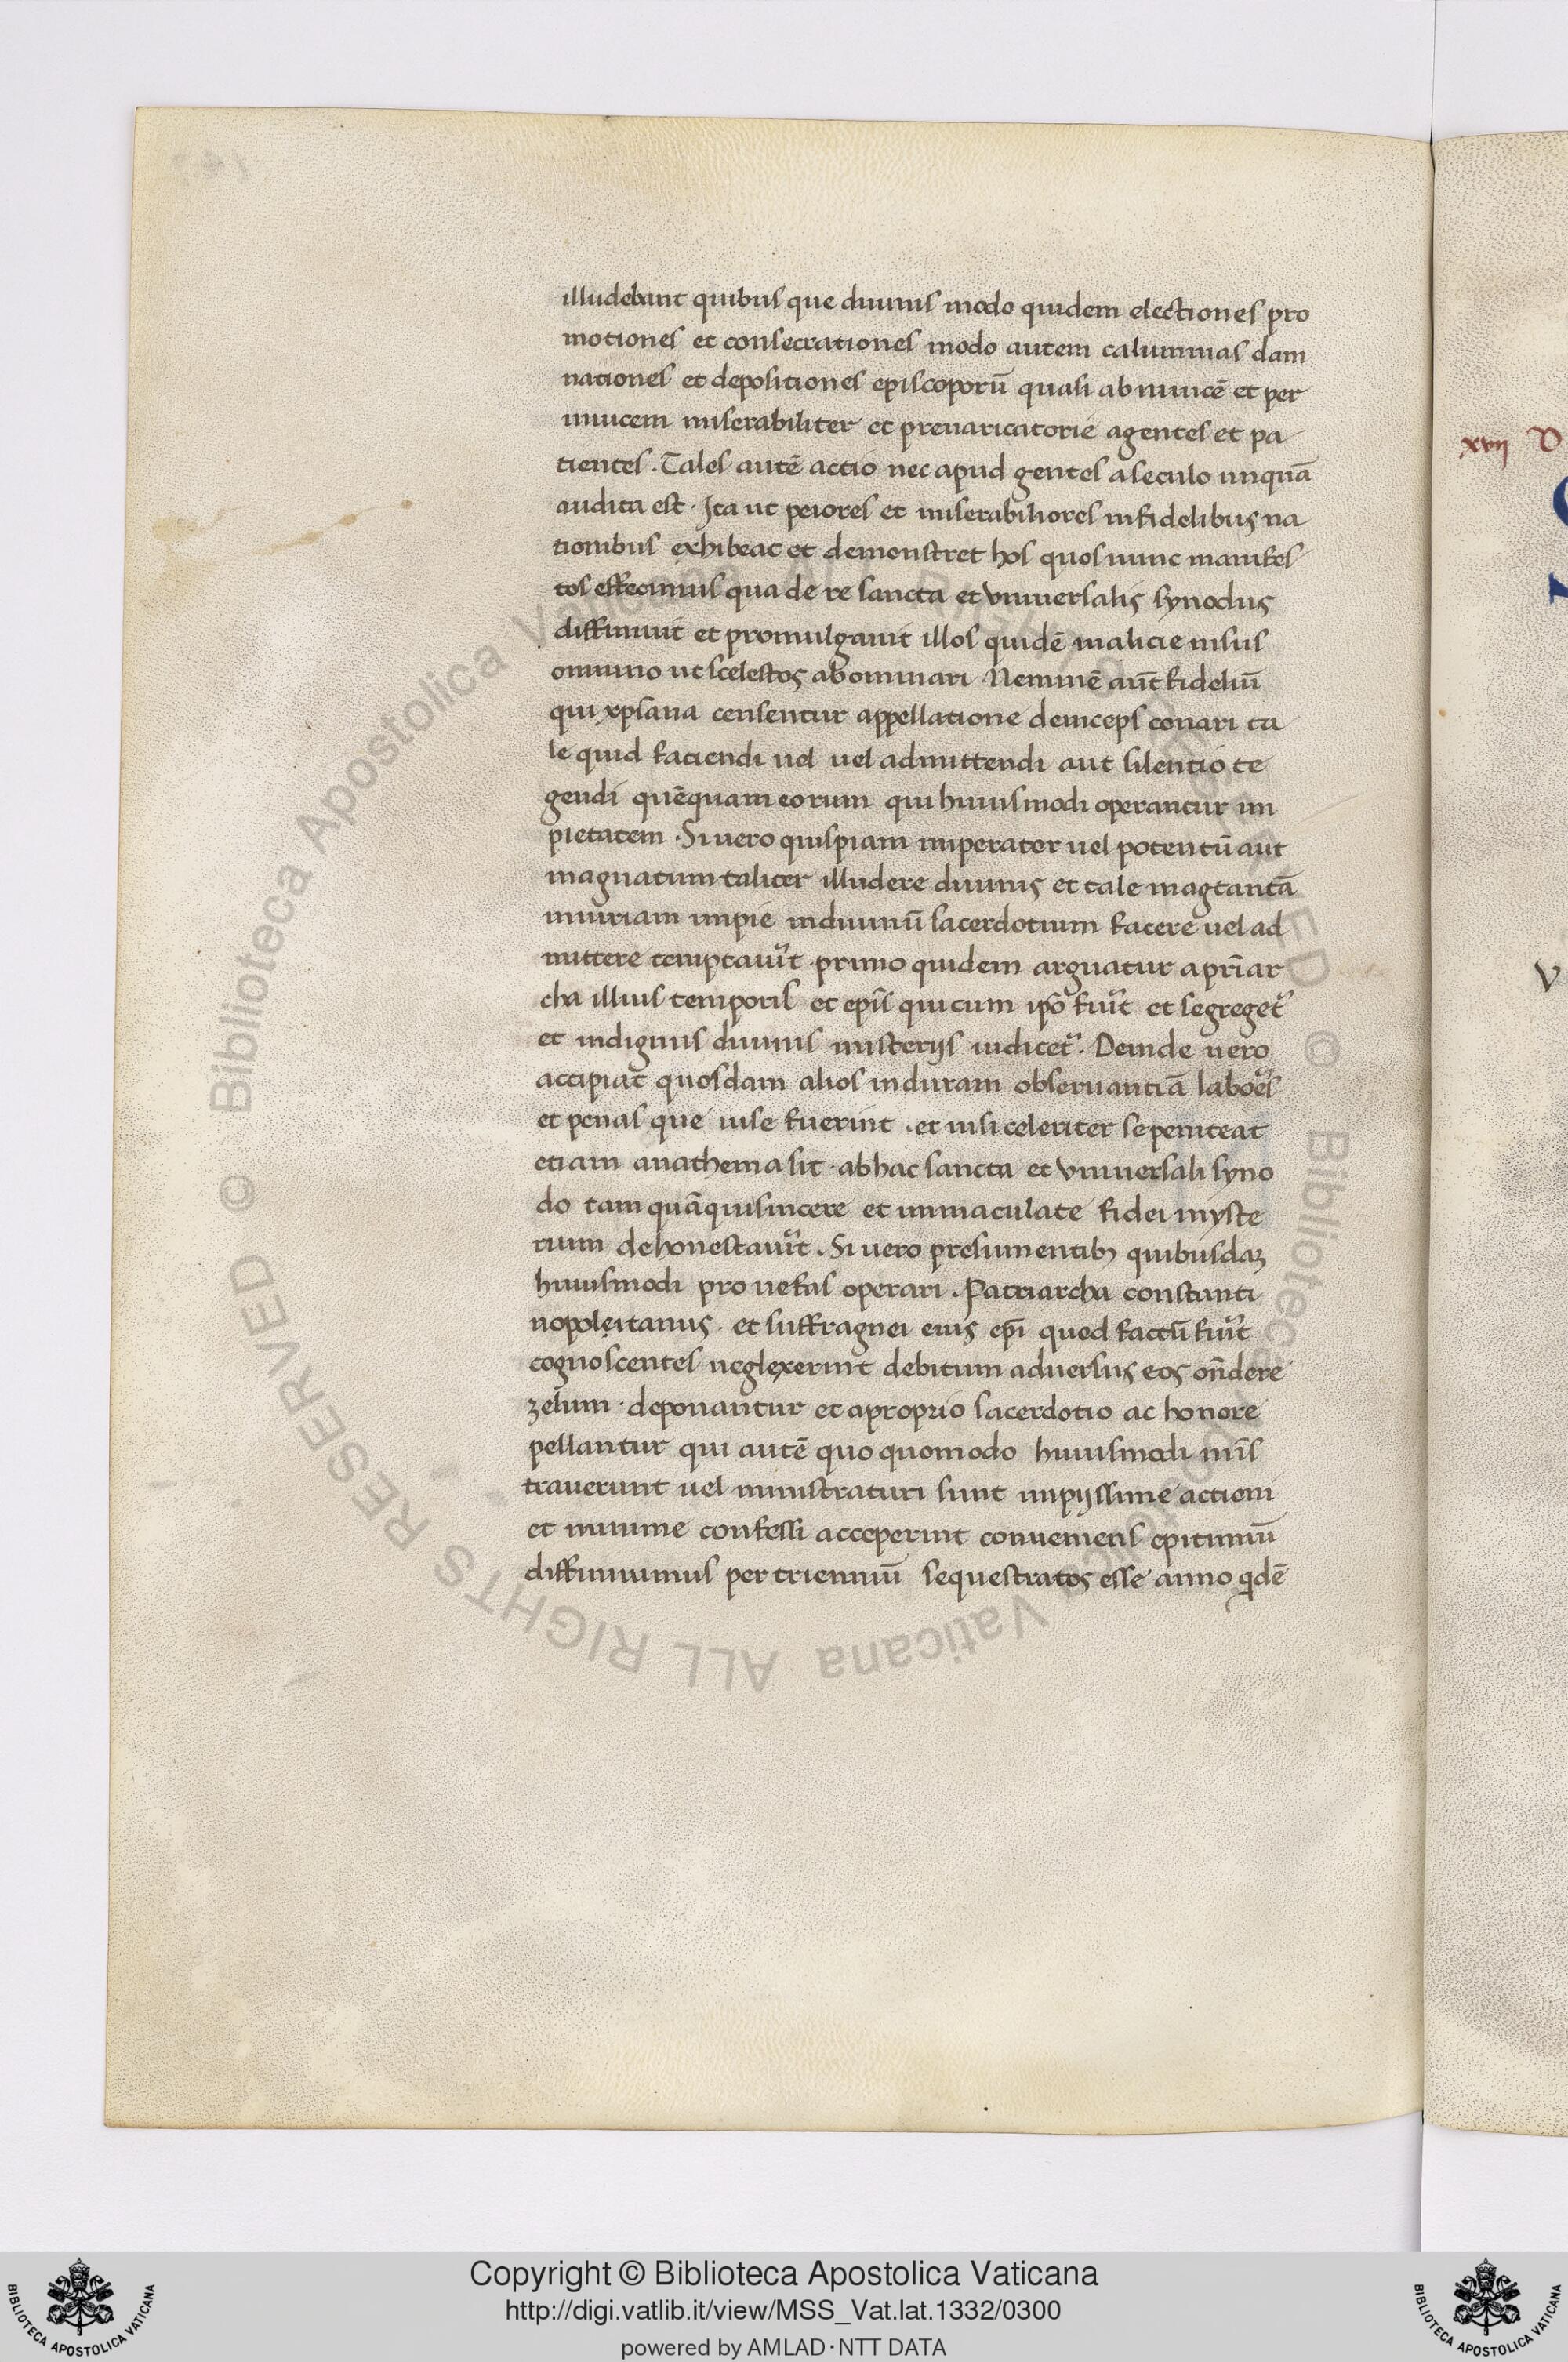 illudebant quibus que diuinis modo quidem electiones pro
motiones et consecrationes modo autem calumnias dam
nationes et depositiones episcoporū quasi ab inuicē et per
inuicem miserabiliter et preuaricatorie agentes et pa
tientes. Tales autē actio nec apud gentes a seculo unquā
audita est. Ita ut peiores et miserabiliores infidelibus na
tionibus exhibeat et demonstret hos quos nunc manifes
tos effecimus qua de re sancta et vniuersalis synodus
diffiniuit et promulgauit illos quidē malicie nisus
omnino ut scelestos abominari. Neminē aūt fideliū
qui xp̄iana censentur appellatione deinceps conari ta
le quid faciendi uel uel admittendi aut silentio te
gendi quēquam eorum qui huiusmodi operantur im
pietatem. Si uero quispiam imperator uel potentū aut
magnatum taliter illudere diuinis et tale mag tantā
iniuriam impie in diuinū sacerdotium facere uel ad
mittere temptauit̃. primo quidem arguatur a pr̄iar
cha illius temporis et ep̄is qui cum ip̄o fuit̃ et segreget̃
et indignus diuinis misterijs iudicet̃. Deinde uero
accipiat quosdam alios in duram obseruantiā laboēs
et penas que uise fuerint. et nisi celeriter se peniteat
etiam anathema sit. ab hac sancta et vniuersali syno
do tam quā qui sincere et immaculate fidei myste
rium dehonestauit̃. Si uero presumentibꝫ quibusdaꝫ
huiusmodi pro nefas operari. Patriarcha constanti
nopoleitanus. et suffragnei eius ep̄i quod factū fuit̃
cognoscentes neglexerint debitum aduersus eos on̄dere
zelum. deponantur et a proprio sacerdotio ac honore
pellantur qui autē quo quomodo huiusmodi mīs
trauerunt uel ministraturi sunt impijssime actioni
et minime confessi acceperint conueniens epitimiū
diffiniuimus per trienniū sequestratos esse anno qdē
xvij D
V
© Biblioteca Apostolica Vaticana ALL RIGHTS RESERVED © Biblioteca Apostolica Vaticana ALL RIGHTS RESERVED
Copyright © Biblioteca Apostolica Vaticana
http://digi.vatlib.it/view/MSS_Vat.lat.1332/0300
powered by AMLAD · NTT DATA
BIBLIOTECA APOSTOLICA VATICANA
BIBLIOTECA APOSTOLICA VATICANA